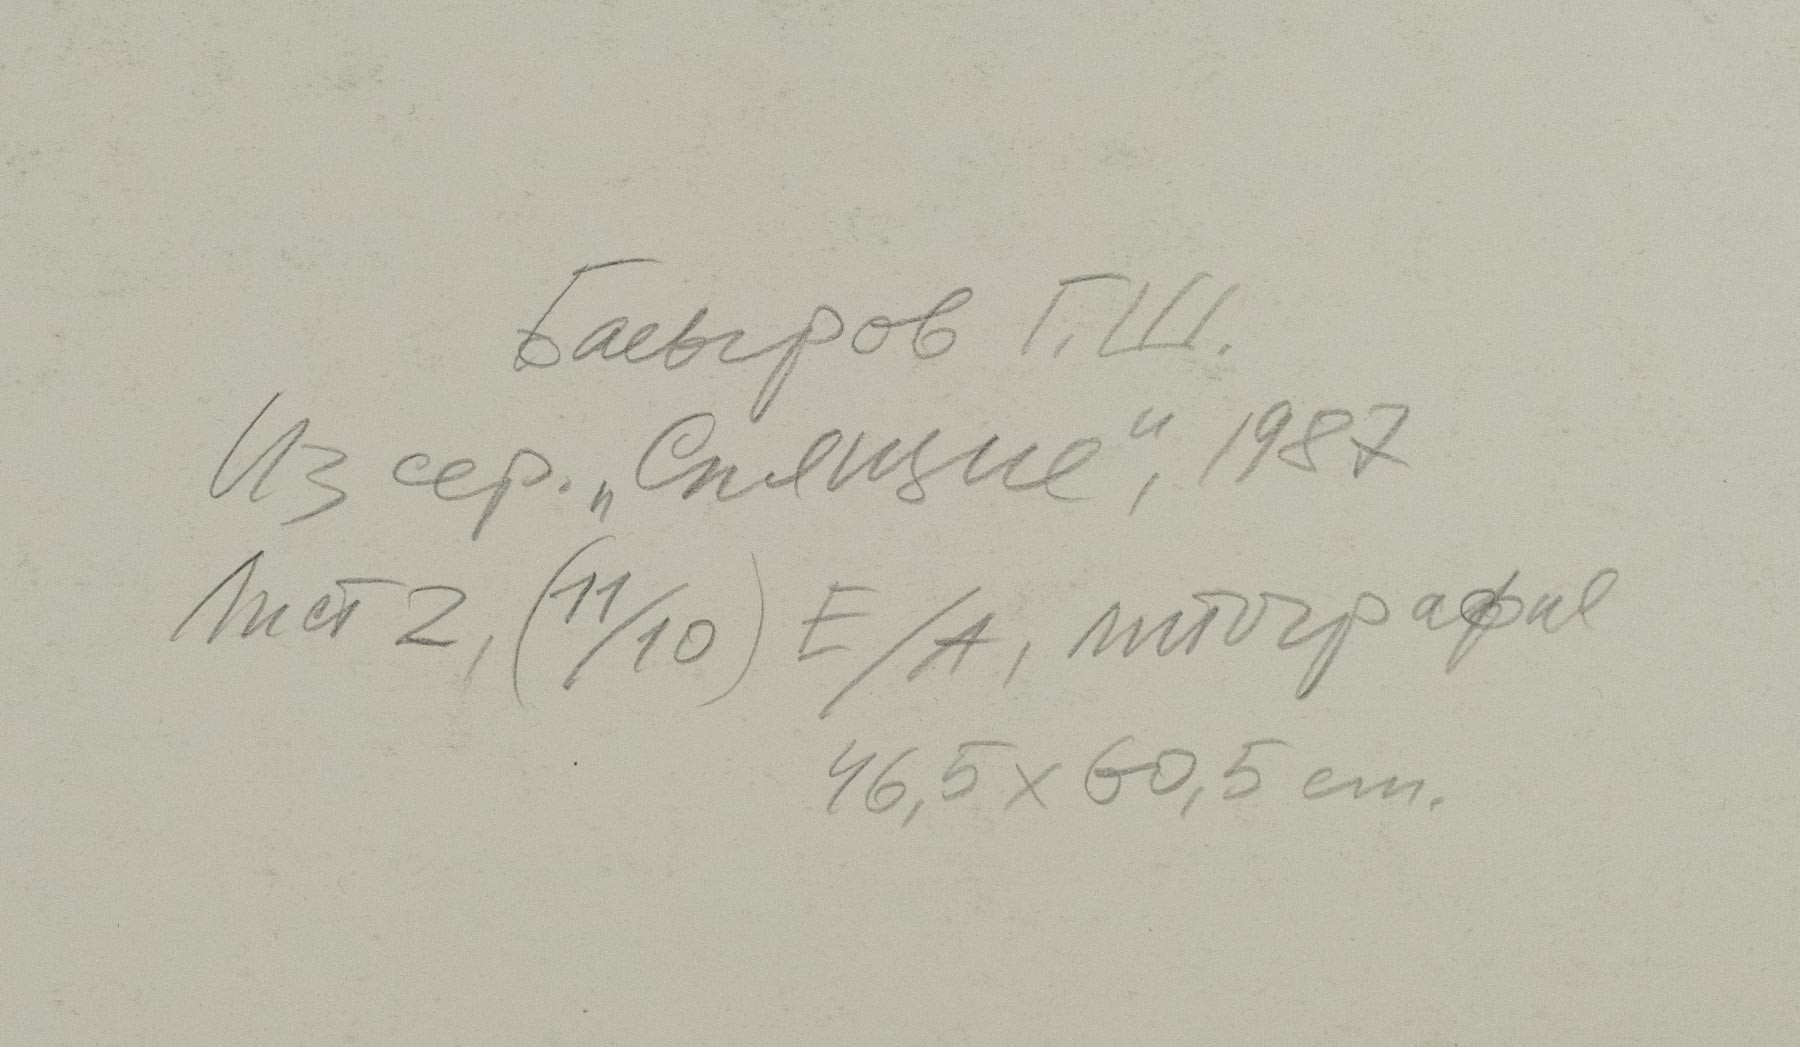 Басыров Г.Ш.
Из сер. „Спящие“, 1987
Лист 2, (11/10) E/A, литография
46,5 x 60,5 cm.